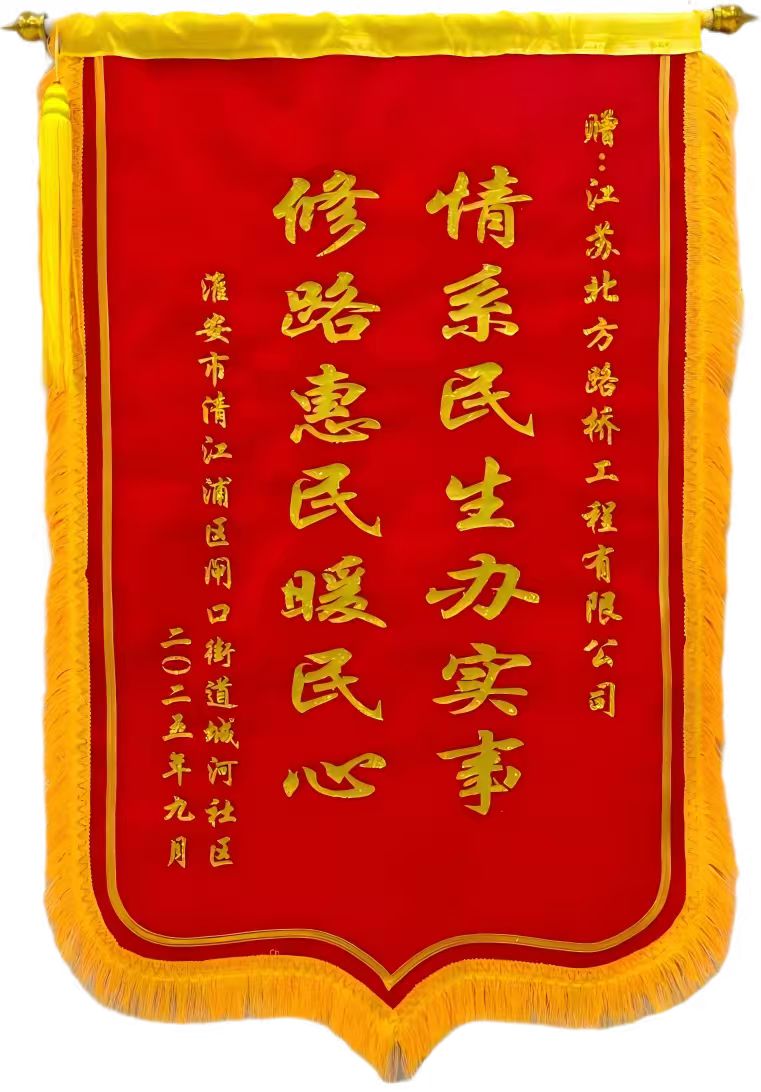 赠：江苏北方路桥工程有限公司
情系民生办实事
修路惠民暖民心
淮安市清江浦区闸口街道城河社区
二〇二五年九月